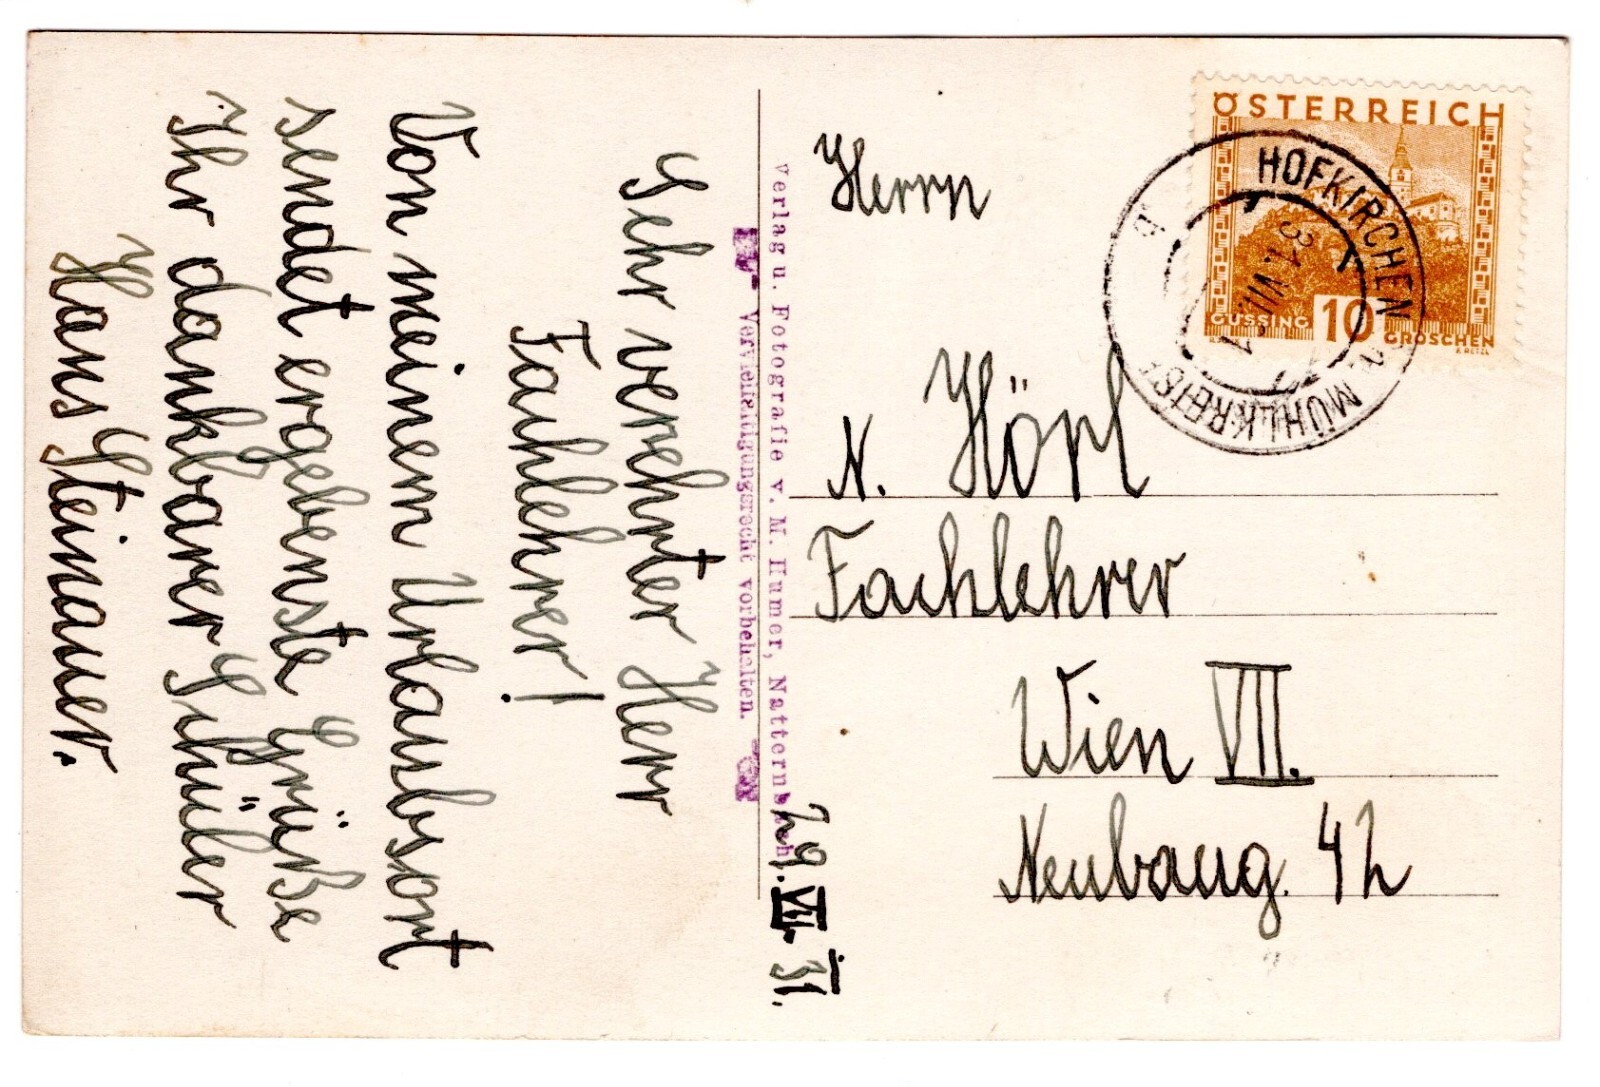 Sehr verehrter Herr
Fachlehrer!
Von meinem Urlaubsort
sendet ergebenste Grüße
Ihr dankbarer Schüler
Hans Steinauer.
29. VII. 31.
Verlag u. Fotografie v. M. Humer, Natternbach
Vervielfältigungsrecht vorbehalten.
Herrn
N. Hörl
Fachlehrer
Wien VII.
Neubaug. 42
ÖSTERREICH
GÜSSING 10 GROSCHEN
HOFKIRCHEN
MÜHLKREIS
31. VII.